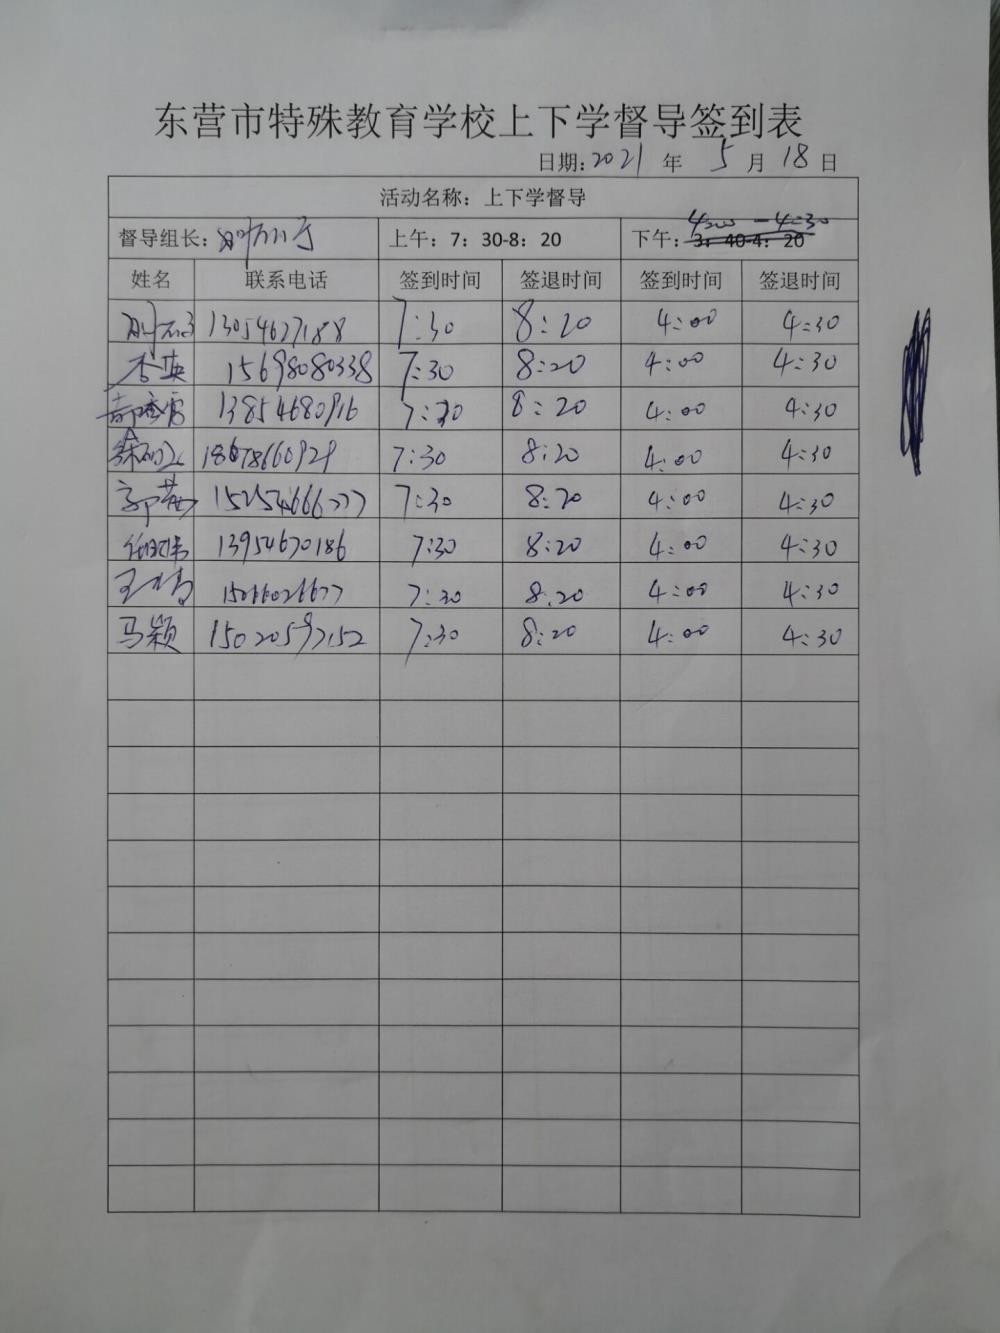 东营市特殊教育学校上下学督导签到表
日期:2021 年 5 月 18 日
活动名称：上下学督导
督导组长： 上午：7：30-8：20 下午：4:00-4:30 3：40-4：20
姓名 联系电话 签到时间 签退时间 签到时间 签退时间
13054627188 7:30 8:20 4:00 4:30
李英 15698080338 7:30 8:20 4:00 4:30
13854680916 7:30 8:20 4:00 4:30
18678660929 7:30 8:20 4:00 4:30
郭茜 15254666777 7:30 8:20 4:00 4:30
13954670186 7:30 8:20 4:00 4:30
王 7:30 8:20 4:00 4:30
马颖 15020597152 7:30 8:20 4:00 4:30